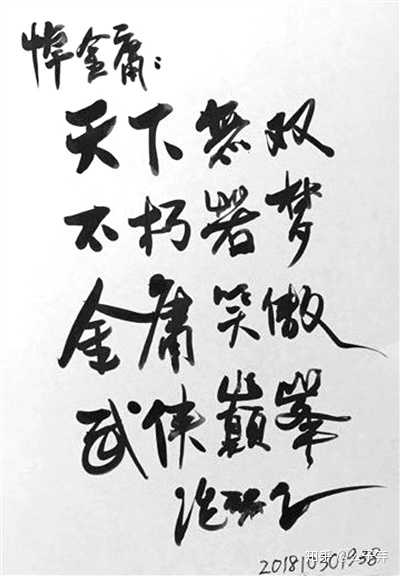 悼金庸：
天下無双
不朽若梦
金庸笑傲
武侠巅峯
201810301938
知乎